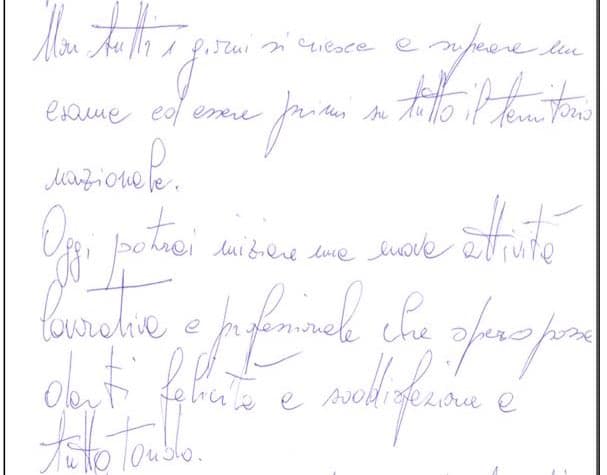 Non tutti i giorni si riesce a superare un
esame ed essere primi su tutto il territorio
nazionale.
Oggi potrai iniziare una nuova attività
lavorativa e professionale che spero possa
darti felicità e soddisfazione a
tutto tondo.